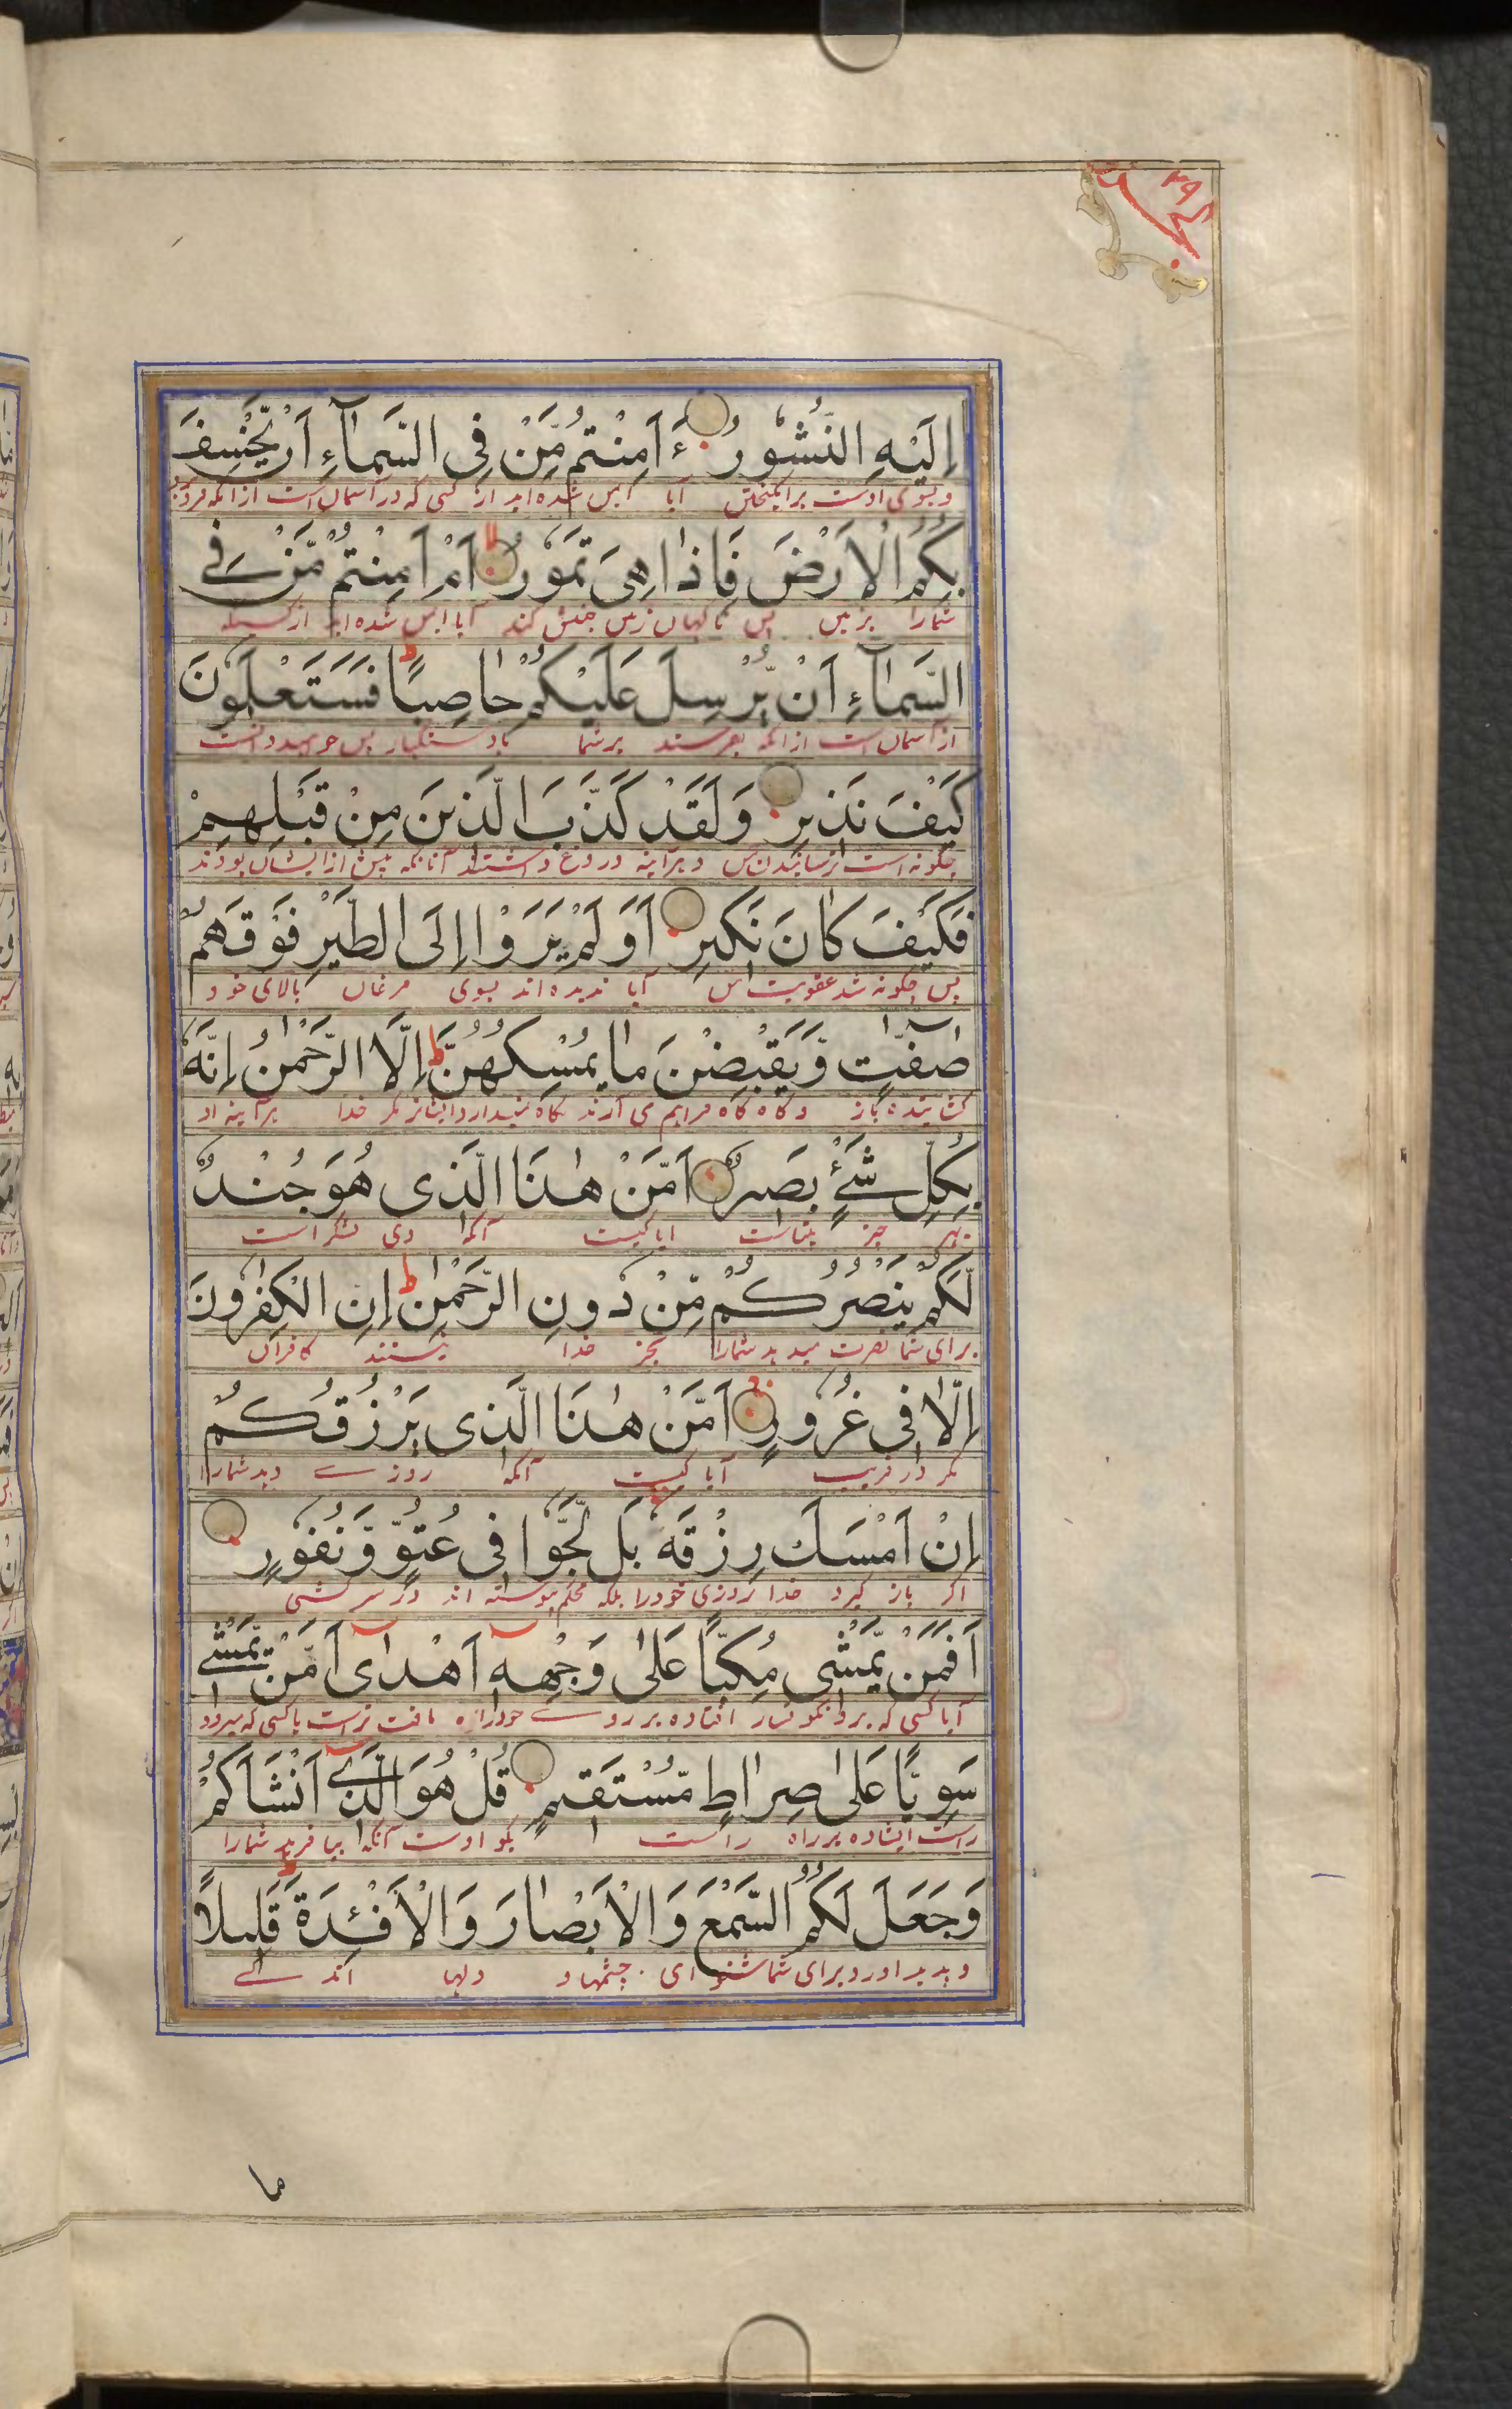 ۲۹
اِلَیْهِ النُّشُوْرُ ءَ اَمِنْتُمْ مَّنْ فِی السَّمَآءِ اَنْ یَّخْسِفَ
و بسوی اوست برانگیختن آیا ایمن شده اید از کسی که در آسمان است از انکه فرو برد
بِکُمُ الْاَرْضَ فَاِذَا هِیَ تَمُوْرُ اَمْ اَمِنْتُمْ مَّنْ فِی
شمارا بزمین پس ناگهان زمین جنبش کند آیا ایمن شده اید از کسیکه
السَّمَآءِ اَنْ یُّرْسِلَ عَلَیْکُمْ حَاصِبًا ط فَسَتَعْلَمُوْنَ
در آسمان است از انکه بفرستد بر شما باد سنگبار پس خواهید دانست
کَیْفَ نَذِیْرِ وَ لَقَدْ کَذَّبَ الَّذِیْنَ مِنْ قَبْلِهِمْ
چگونه است ترسانیدن من و هرآینه دروغ داشتند آنانکه پیش از ایشان بودند
فَکَیْفَ کَانَ نَکِیْرِ اَوَ لَمْ یَرَوْا اِلَی الطَّیْرِ فَوْقَهُمْ
پس چگونه شد عقوبت من آیا ندیده اند بسوی مرغان بالای خود
صٰٓفّٰتٍ وَّ یَقْبِضْنَ مَا یُمْسِکُهُنَّ ط اِلَّا الرَّحْمٰنُ اِنَّهٗ
کشاینده باز و گاه گاه فراهم می آرند نگاه نمیدارد ایشانرا مگر خدا هرآینه او
بِکُلِّ شَیْءٍ بَصِیْرٌ اَمَّنْ هٰذَا الَّذِیْ هُوَ جُنْدٌ
بهر چیز بیناست ایا کیست آنکه وی لشکر است
لَّکُمْ یَنْصُرُکُمْ مِّنْ دُوْنِ الرَّحْمٰنِ ط اِنِ الْکٰفِرُوْنَ
برای شما نصرت میدهد شمارا بجز خدا نیستند کافران
اِلَّا فِیْ غُرُوْرٍ اَمَّنْ هٰذَا الَّذِیْ یَرْزُقُکُمْ
مگر در فریب آیا کیست آنکه روزی دهد شمارا
اِنْ اَمْسَکَ رِزْقَهٗ بَلْ لَّجُّوْا فِیْ عُتُوٍّ وَّ نُفُوْرٍ
اگر باز گیرد خدا روزی خودرا بلکه محکم پیوسته اند در سرکشی
اَفَمَنْ یَّمْشِیْ مُکِبًّا عَلٰی وَجْهِهٖٓ اَهْدٰیٓ اَمَّنْ یَّمْشِیْ
آیا کسی که برود نگونسار افتاده بر روی خود راه یافته تراست یا کسی که میرود
سَوِیًّا عَلٰی صِرَاطٍ مُّسْتَقِیْمٍ قُلْ هُوَ الَّذِیْٓ اَنْشَاَکُمْ
راست ایستاده بر راه راست بگو اوست آنکه بیافرید شمارا
وَجَعَلَ لَکُمُ السَّمْعَ وَ الْاَبْصَارَ وَ الْاَفْـِٕدَةَ ط قَلِیْلًا
و پدید اورد برای شما شنوای و چشمها و دلها اندکی
ما